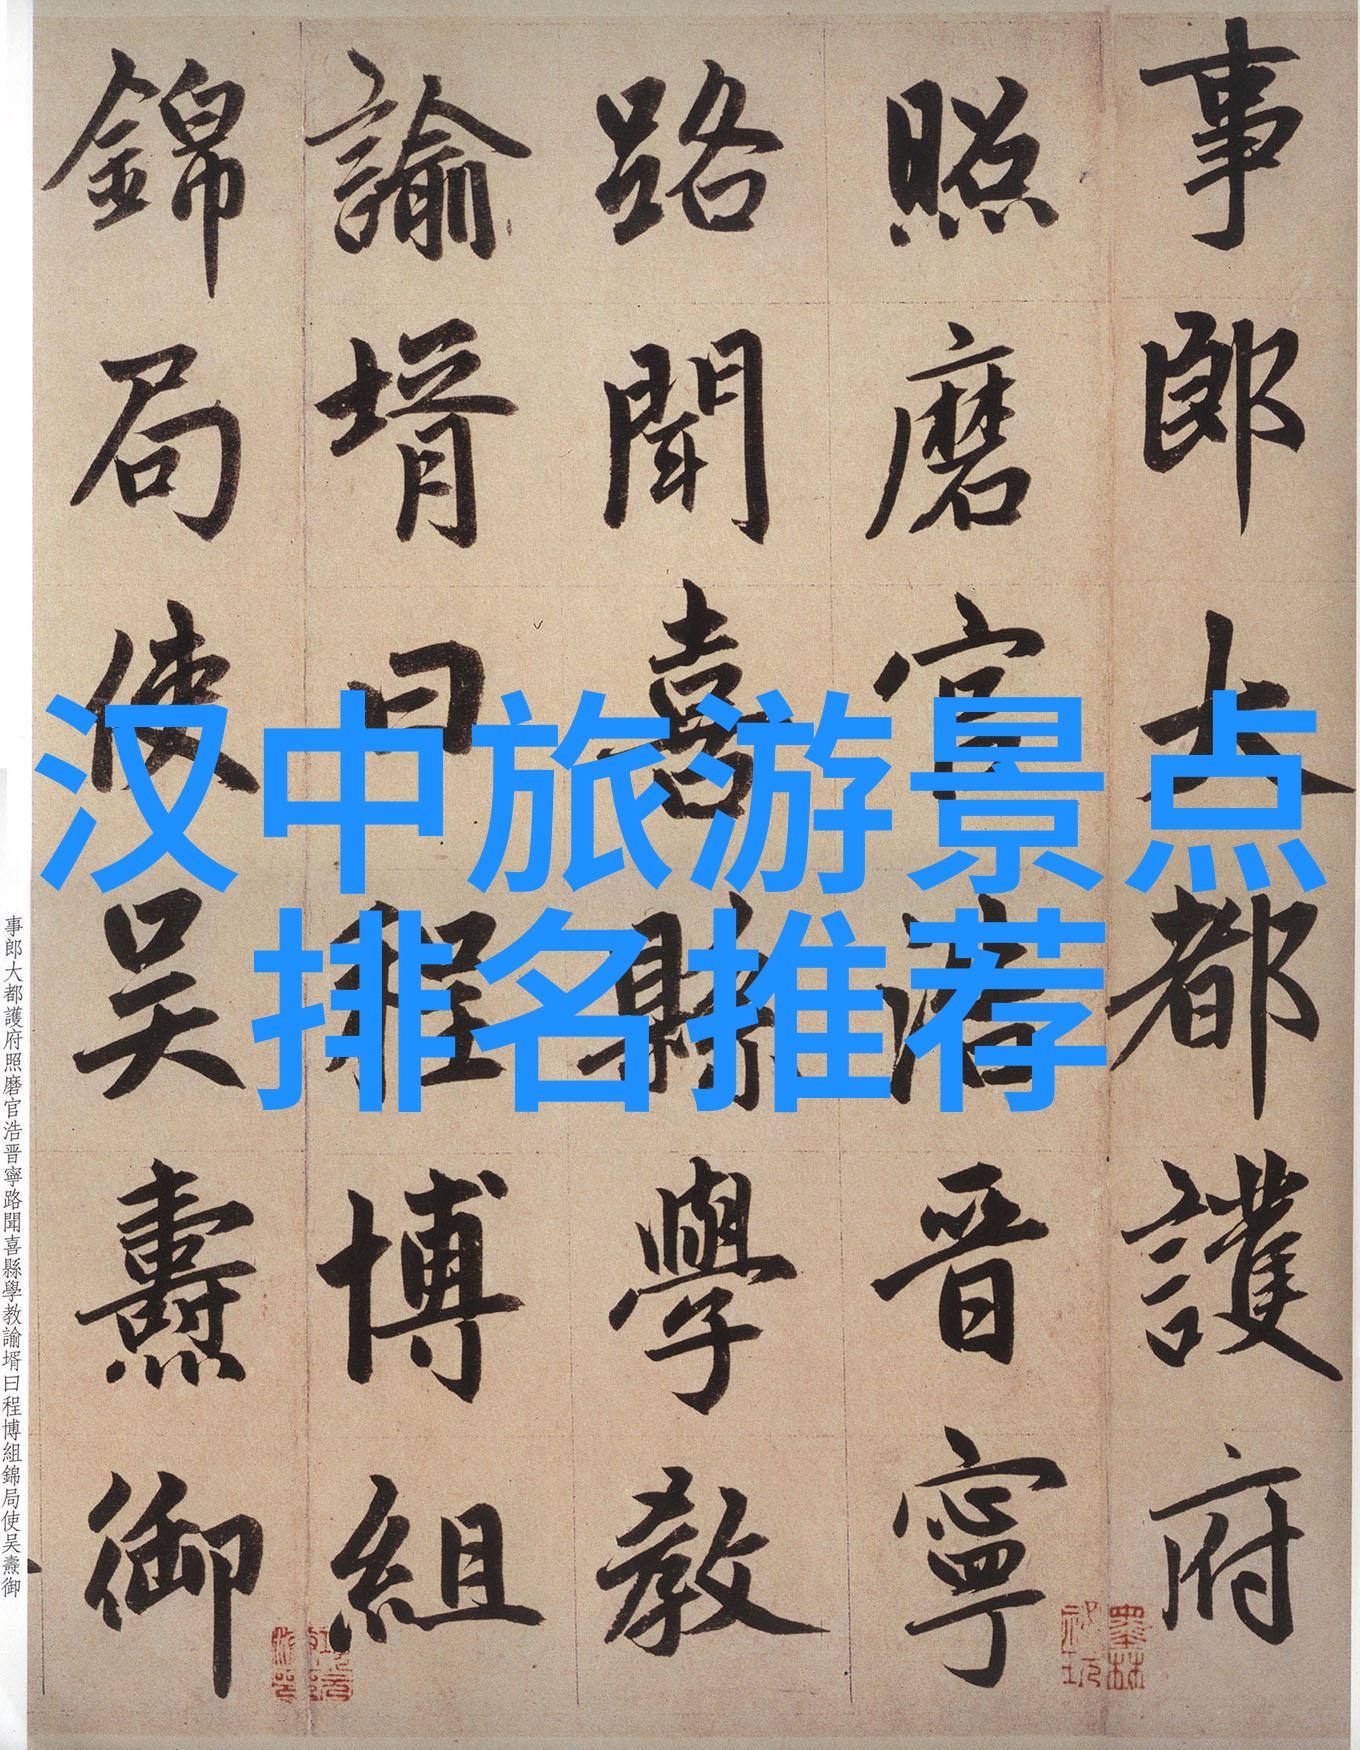 汉中旅游景点
排名推荐
事郎大都護府
照磨官浩晋寧
路聞喜縣學教
諭壻曰程博組
錦局使吴燾御
事郎大都護府照磨官浩晋寧路聞喜縣學教諭壻曰程博組錦局使吴燾御